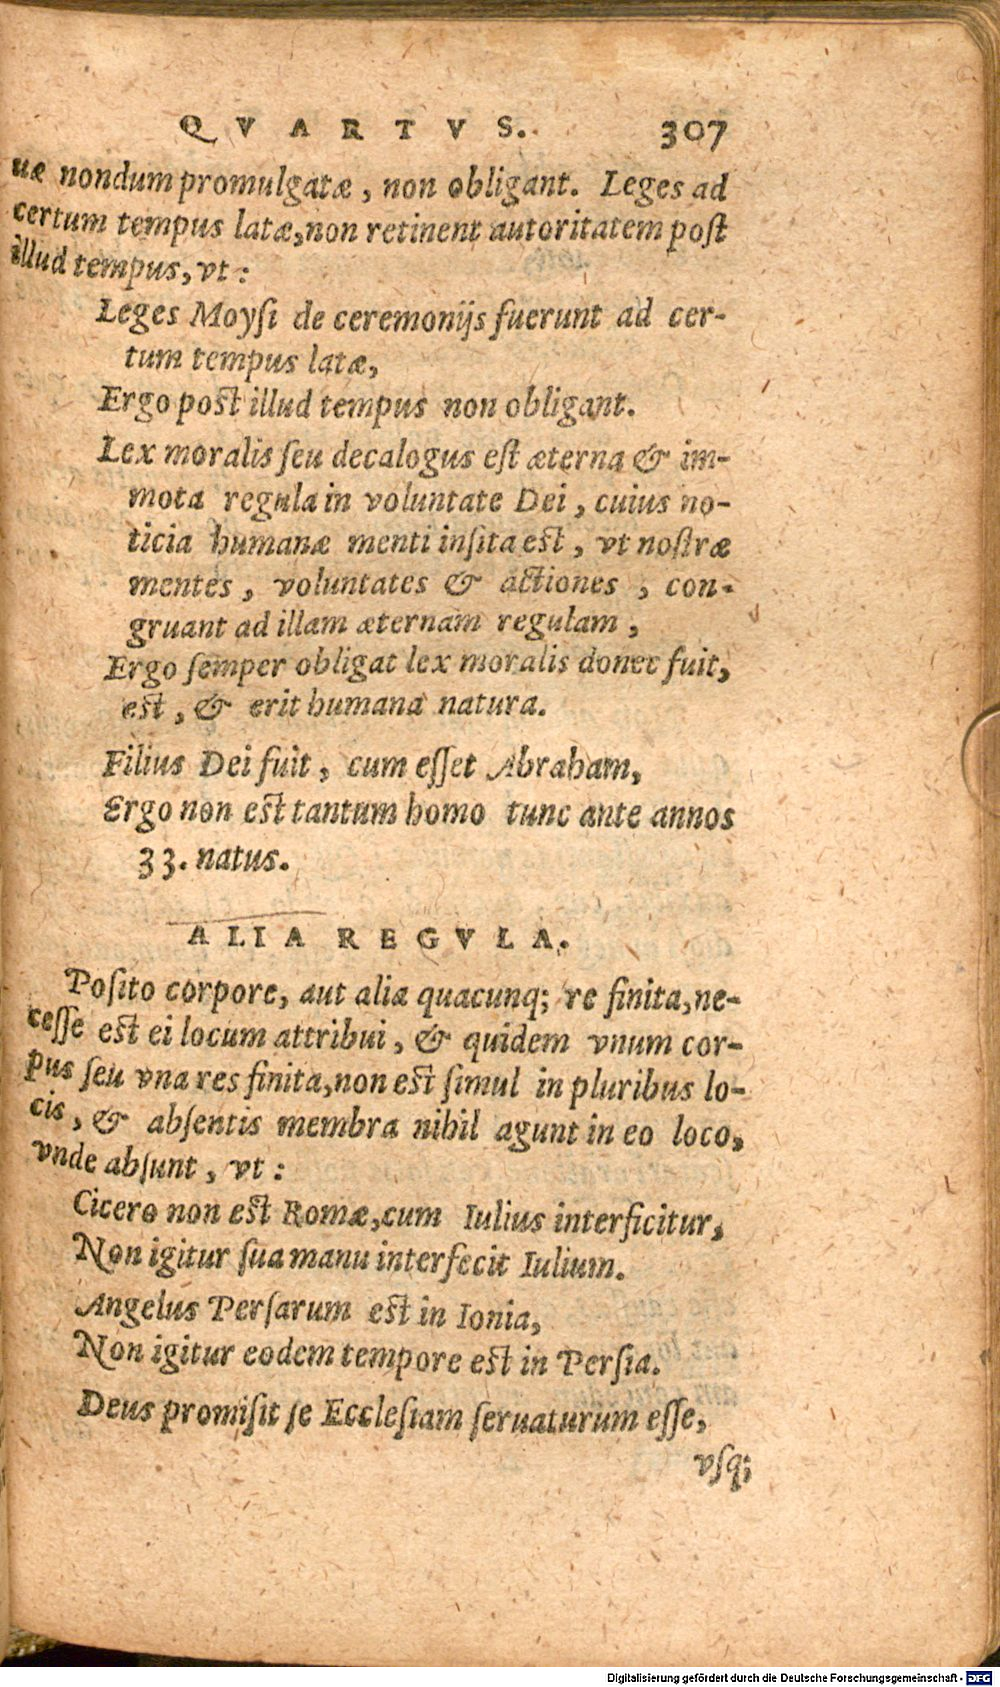 QVARTVS. 307
uæ nondum promulgatæ, non obligant. Leges ad
certum tempus latæ, non retinent autoritatem poſt
illud tempus, vt:
Leges Moyſi de ceremonijs fuerunt ad cer-
tum tempus latæ,
Ergo poſt illud tempus non obligant.
Lex moralis ſeu decalogus eſt æterna & im-
mota regula in voluntate Dei, cuius no-
ticia humanæ menti inſita eſt, vt noſtræ
mentes, voluntates & actiones, con-
gruant ad illam æternam regulam,
Ergo ſemper obligat lex moralis donec fuit,
eſt, & erit humana natura.
Filius Dei fuit, cum eſſet Abraham,
Ergo non eſt tantum homo tunc ante annos
33. natus.
ALIA REGVLA.
Poſito corpore, aut alia quacunq; re finita, ne-
ceſſe eſt ei locum attribui, & quidem vnum cor-
pus ſeu vna res finita, non eſt ſimul in pluribus lo-
cis, & abſentis membra nihil agunt in eo loco,
vnde abſunt, vt:
Cicero non eſt Romæ, cum Iulius interficitur,
Non igitur ſua manu interfecit Iulium.
Angelus Perſarum eſt in Ionia,
Non igitur eodem tempore eſt in Perſia.
Deus promiſit ſe Eccleſiam ſeruaturum eſſe,
vſq;
Digitalisierung gefördert durch die Deutsche Forschungsgemeinschaft - DFG